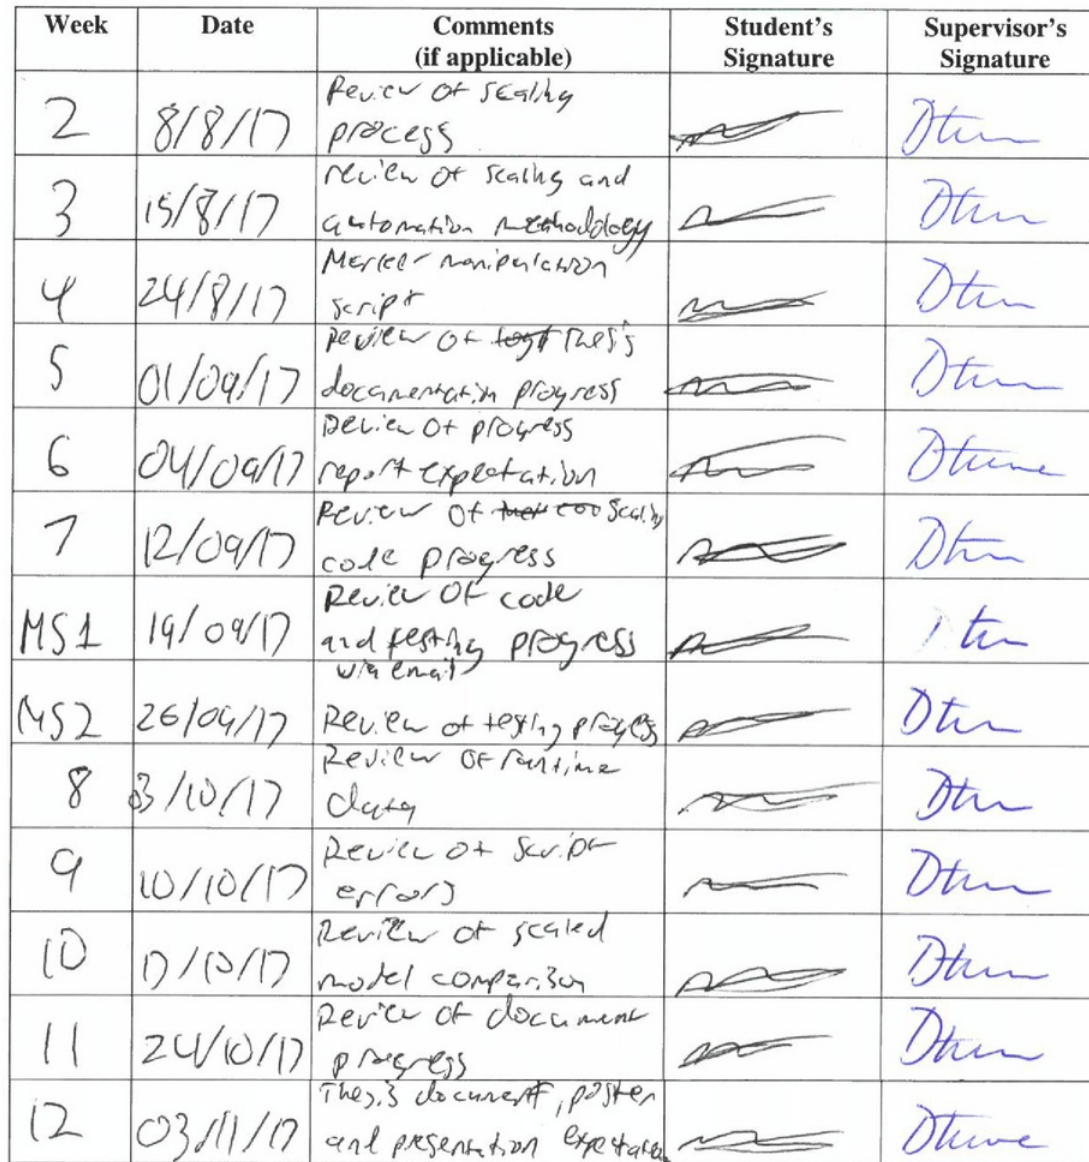 Week Date Comments Student's Supervisor's
(if applicable) Signature Signature
2 8/8/17 Review of scaling
process
3 15/8/17 review of scaling and
automation methodology
4 24/8/17 Marker manipulation
script
5 01/09/17 Review of Thesis
documentation progress
6 04/09/17 Review of progress
report expectation
7 12/09/17 Review of scaling
code progress
MS1 19/09/17 Review of code
and testing progress
MS2 26/09/17 via email
Review of testing progress
8 03/10/17 Review of runtime
data
9 10/10/17 Review of script
errors
10 17/10/17 Review of scaled
model comparison
11 24/10/17 Review of document
progress
12 03/11/17 Thesis document, poster
and presentation